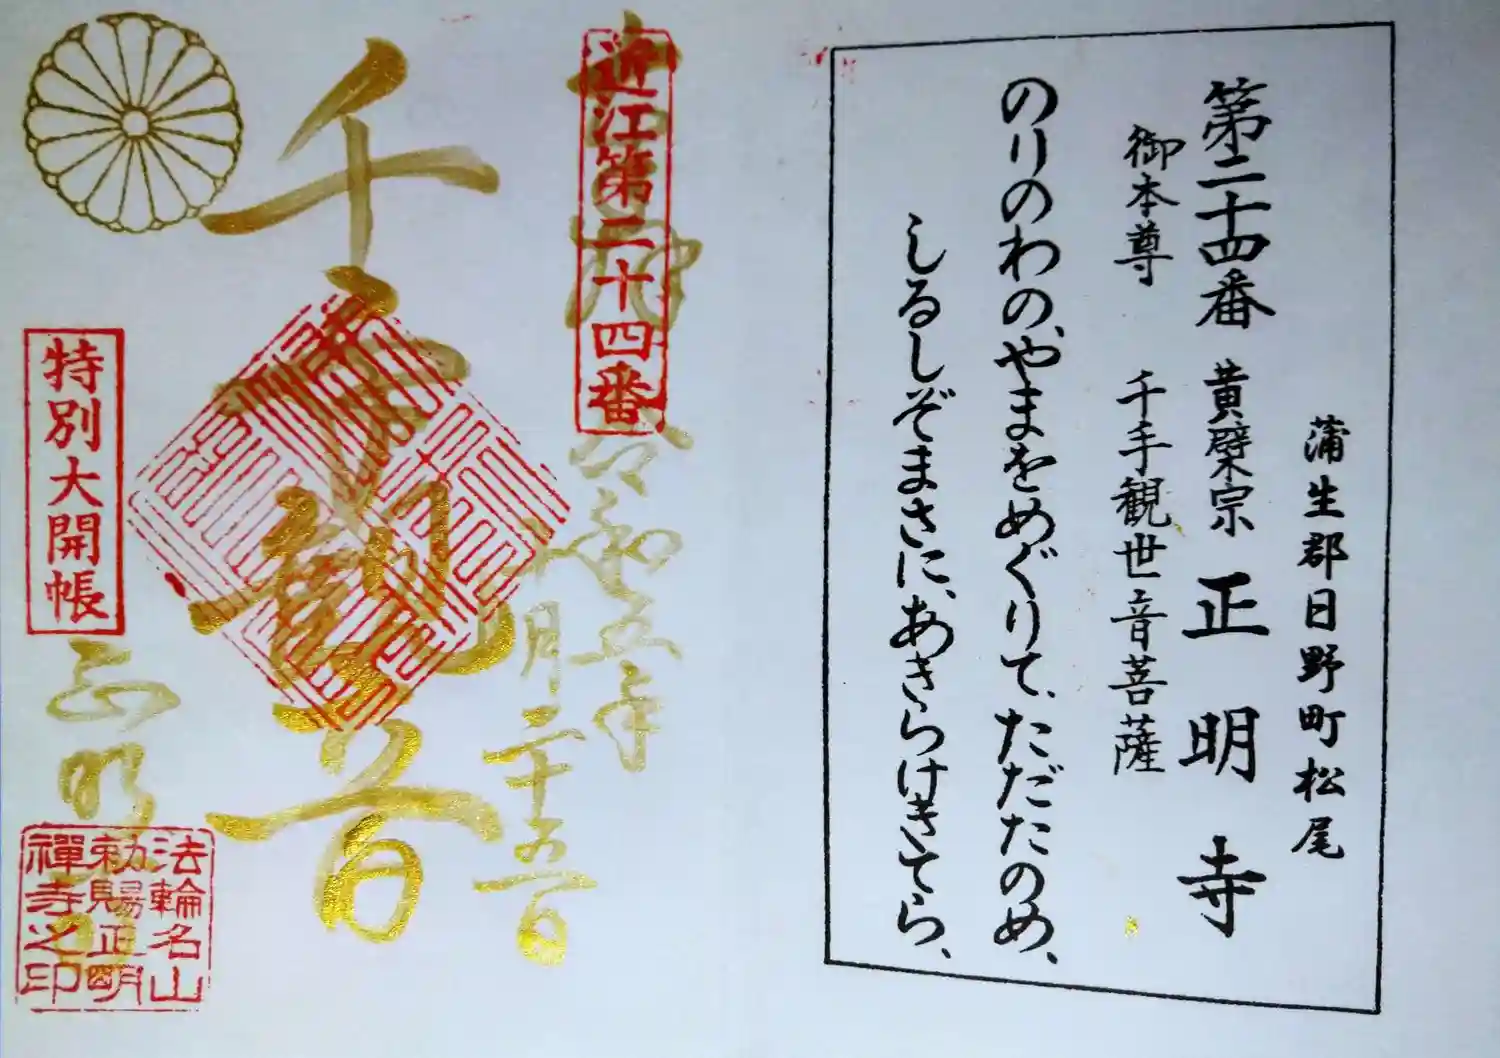 蒲生郡日野町松尾
第二十四番 黄檗宗 正明寺
御本尊 千手観世音菩薩
のりのわの、やまをめぐりて、ただたのめ、
しるしぞまさに、あきらけきてら、
近江第二十四番
奉拝
令和五年
十月二十五日
千手観音
特別大開帳
正明寺
法輪名山
勅賜正明
禪寺之印